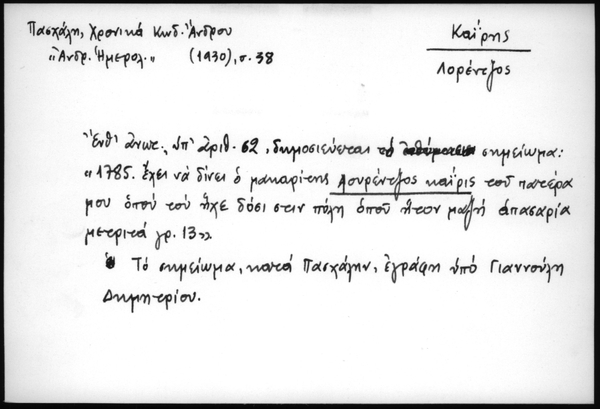 Πασχάλη, Χρονικά Κωδ. Ἄνδρου
"Ἀνδρ. Ἡμερολ." (1930), σ. 38
Καΐρης
Λορέντζος
Ἔνθ' ἄνωτ., ὑπ' ἀριθ. 62, δημοσιεύεται σημείωμα:
"1785. ἔχει νὰ δίνει ὁ μακαρίτης Λουρέντζος καΐρις τοῦ πατέρα
μου ὁποῦ τοῦ ἦχε δόσι στιν πόλη ὁποῦ ἦτον μαζή ἀπασαρία
μετριτά γρ. 13"
Τό σημείωμα, κατά Πασχάλην, ἐγράφη ὑπό Γιαννούλη
Δημητρίου.